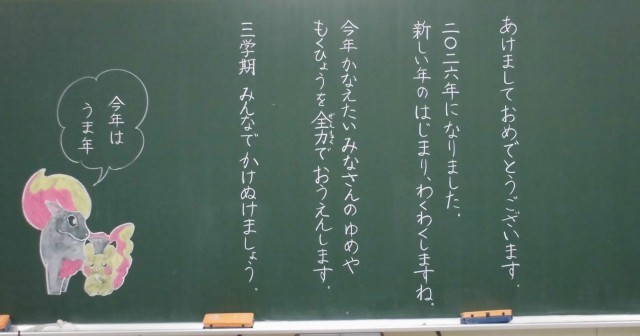 あけましておめでとうございます.
二〇二六年になりました.
新しい年のはじまり,わくわくしますね.
今年かなえたいみなさんのゆめや
もくひょうを全力でおうえんします.
ぜんりょく
三学期 みんなでかけぬけましょう.
今年は
うま年